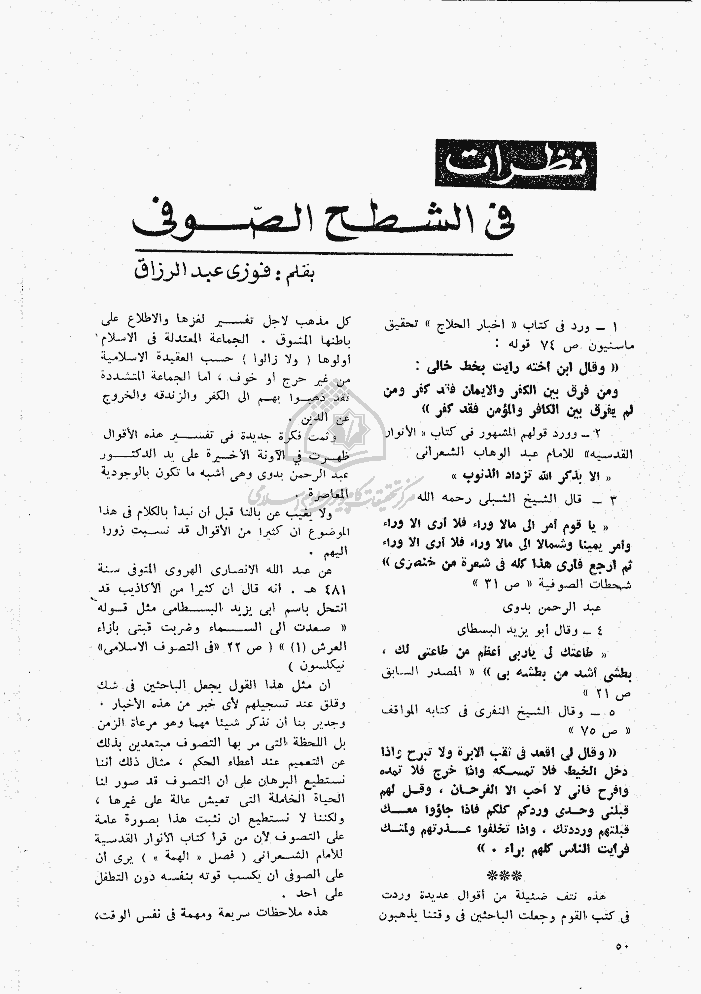 نظرات
فى الشطح الصوفى
بقلم : فوزى عبد الرزاق
١ ــ ورد فى كتاب « اخبار الحلاج » تحقيق
ماسنيون ص ٧٤ قوله :
« وقال ابن اخته رايت بخط خالى :
ومن فرق بين الكفر والايمان فقد كفر ومن
لم يفرق بين الكافر والمؤمن فقد كفر »
٢ ــ وورد قولهم المشهور فى كتاب « الأنوار
القدسية » للامام عبد الوهاب الشعرانى
« الا بذكر الله تزداد الذنوب »
٣ ــ قال الشيخ الشبلى رحمه الله
« يا قوم أمر الى مالا وراء فلا أرى الا وراء
وأمر يمينا وشمالا الى مالا وراء فلا أرى الا وراء
ثم ارجع فارى هذا كله فى شعرة من خنصرى »
شحطات الصوفية « ص ٣١ »
عبد الرحمن بدوى
٤ ــ وقال أبو يزيد البسطاى
« طاعتك لى ياربى أعظم من طاعتى لك ،
بطشى أشد من بطشه بى » « المصدر السابق
ص ٢١ »
٥ ــ وقال الشيخ النفرى فى كتابه المواقف
« ص ٧٥ »
« وقال لى اقعد فى ثقب الابرة ولا تبرح واذا
دخل الخيط فلا تمسكه واذا خرج فلا تمده
وافرح فانى لا أحب الا الفرحان ، وقل لهم
قبلنى وحدى وردكم كلكم فاذا جاؤوا معك
قبلتهم ورددتك . واذا تخلفوا عذرتهم ولمتك
فرايت الناس كلهم براء . »
***
هذه نتف ضئيلة من أقوال عديدة وردت
فى كتب القوم وجعلت الباحثين فى وقتنا يذهبون
كل مذهب لاجل تفسير لغزها والاطلاع على
باطنها المشوق . الجماعة المعتدلة فى الاسلام
أولوها ( ولا زالوا ) حسب العقيدة الاسلامية
من غير حرج أو خوف ، أما الجماعة المتشددة
فقد ذهبوا بهم الى الكفر والزندقه والخروج
عن الدين .
وثمت فكرة جديدة فى تفسير هذه الأقوال
ظهرت فى الآونة الأخيرة على يد الدكتور
عبد الرحمن بدوى وهى أشبه ما تكون بالوجودية
المعاصرة .
ولا يغيب عن بالنا قبل أن نبدأ بالكلام فى هذا
الموضوع ان كثيرا من الأقوال قد نسبت زورا
اليهم .
عن عبد الله الانصارى الهروى المتوفى سنة
٤٨١ هـ . أنه قال ان كثيرا من الأكاذيب قد
انتحل باسم ابى يزيد البسطامى مثل قوله
« صعدت الى السماء وضربت قبتى بأزاء
العرش (١) » ( ص ٢٢ «فى التصوف الاسلامى»
نيكلسون )
ان مثل هذا القول يجعل الباحثين فى شك
وقلق عند تسجيلهم لأى خبر من هذه الأخبار .
وجدير بنا أن نذكر شيئا مهما وهو مرعاة الزمن
بل اللحظة التى مر بها التصوف مبتعدين بذلك
عن التعميم عند اعطاء الحكم ، مثال ذلك أننا
نستطيع البرهان على ان التصوف قد صور لنا
الحياة الخاملة التى تعيش عالة على غيرها ،
ولكننا لا نستطيع أن نثبت هذا بصورة عامة
على التصوف لأن من قرأ كتاب الأنوار القدسية
للأمام الشعرانى ( فصل « الهمة » ) يرى أن
على الصوفى ان يكسب قوته بنفسه دون التطفل
على احد .
هذه ملاحظات سريعة ومهمة فى نفس الوقت،
٥٠